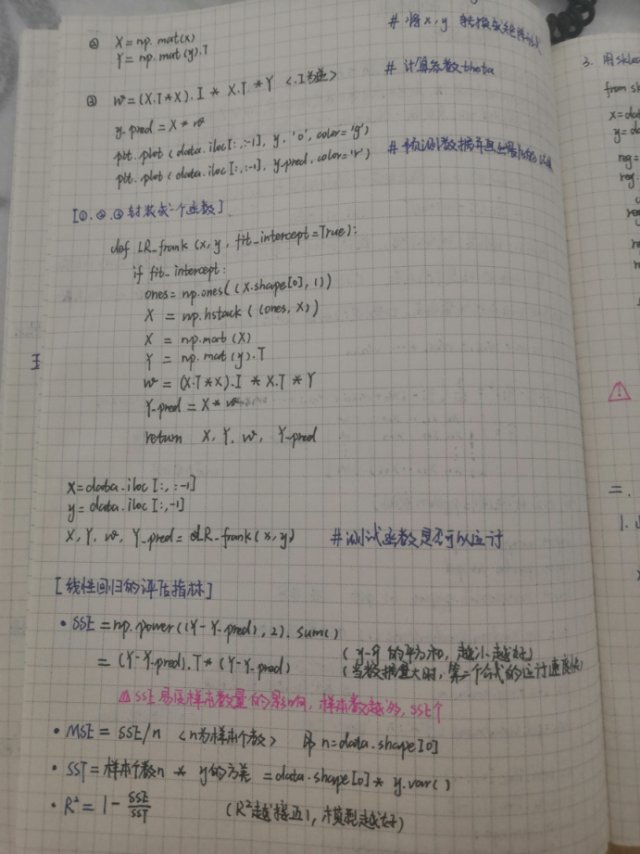 ② X=np.mat(x) #将x,y 转换成矩阵形式
Y=np.mat(y).T
③ w=(X.T*X).I * X.T*Y <.I为逆> #计算系数theta
y_pred=X*w
plt.plot(data.iloc[:,:-1], y, 'o', color='g')
plt.plot(data.iloc[:,:-1], y_pred, color='r') #预测数据并画出
[①.②.③封装成一个函数]
def LR_frank(x,y, fit_intercept=True):
if fit_intercept:
ones=np.ones((X.shape[0],1))
X = np.hstack((ones, X))
X = np.mat(X)
Y = np.mat(y).T
w = (X.T*X).I * X.T * Y
Y_pred = X*w
return X, Y, w, Y_pred
X=data.iloc[:,:-1]
y=data.iloc[:,-1]
X, Y, w, Y_pred = LR_frank(x,y) #测试函数是否可以运行
[线性回归的评估指标]
• SSE=np.power((Y-Y_pred),2).sum() (y-ŷ 的平方和, 越小越好)
= (Y-Y_pred).T*(Y-Y_pred) (当数据量大时, 第二个公式的运计速度快)
⚠ SSE易受样本数量的影响, 样本数越多, SSE↑
• MSE = SSE/n <n为样本个数> 即 n=data.shape[0]
• SST=样本个数n * y的方差 =data.shape[0]* y.var()
• R²=1-SSE/SST (R²越接近1, 模型越好)
3. 用
from sk
x=da
y=da
reg=
reg.
二.
1.